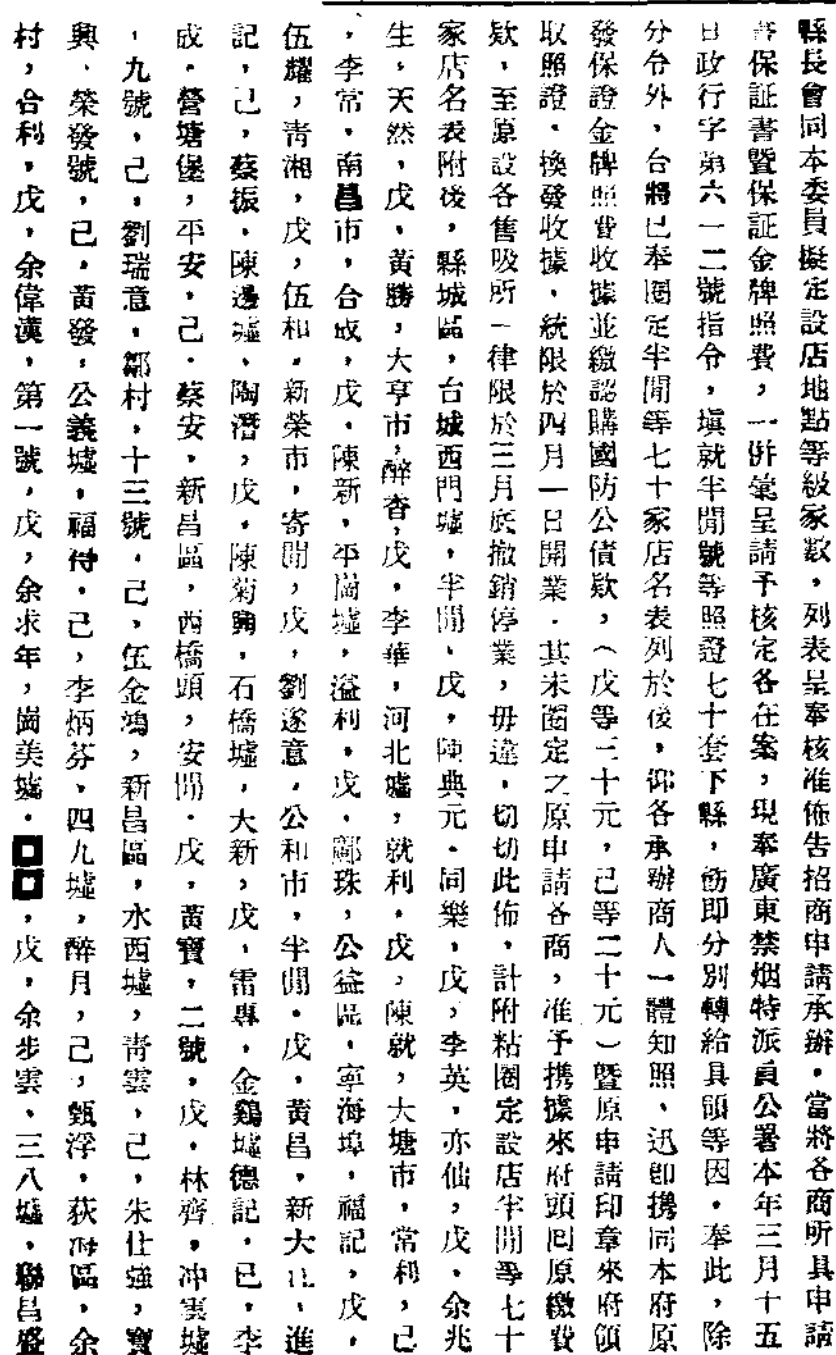 縣長會同本委員擬定設店地點等級家數，列表呈奉核准佈告招商申請承辦。當將各商所具申請
書保証書暨保証金牌照費，一併彙呈請予核定各在案，現奉廣東禁烟特派員公署本年三月十五
日政行字第六一二號指令，塡就半閒號等照證七十套下縣，飭即分別轉給具領等因。奉此，除
分令外，合將已奉圈定半閒等七十家店名表列於後，仰各承辦商人一體知照、迅卽携同本府原
發保證金牌照費收據並繳認購國防公債欵，（戊等三十元，己等二十元）暨原申請印章來府領
取照證，換發收據，統限於四月一日開業．其未圈定之原申請各商，准予携據來府領囘原繳費
欵，至原設各售吸所一律限於三月底撤銷停業，毋違，切切此佈，計附粘圈定設店半閒等七十
家店名表附後，縣城區，台城西門墟，半閒、戊，陳典元．同樂，戊，李英，亦仙，戊，余兆
生，天然，戊，黃勝，大亨市，醉香，戊，李華，河北墟，就利，戊，陳就，大塘市，常利，己
，李常，南昌市，合成，戊，陳新，平崗墟，溢利，戊，鄺珠，公益區，寧海埠，福記，戊，
伍耀，靑湘，戊，伍和，新榮市，寄閒，戊，劉遂意，公和市，半閒，戊，黃昌，新大，進
記，己，蔡振，陳邊墟，陶潛，戊，陳菊興，石橋墟，大新，戊，雷專，金鷄墟德記，已，李
成，營塘堡，平安，己，蔡安，新昌區，西橋頭，安閒，戊，黃寶，二號，戊，林齊，冲蔞墟
，九號，己，劉瑞意，鄒村，十三號，己，伍金鴻，新昌區，水西墟，靑雲，己，朱仕強，寶
興，榮發號，己，黃發，公義墟，福待，己，李炳芬，四九墟，醉月，己，甄浮，荻海區，余
村，合利，戊，余偉漢，第一號，戊，余求年，崗美墟，□□，戊，余步雲，三八墟，聯昌盛